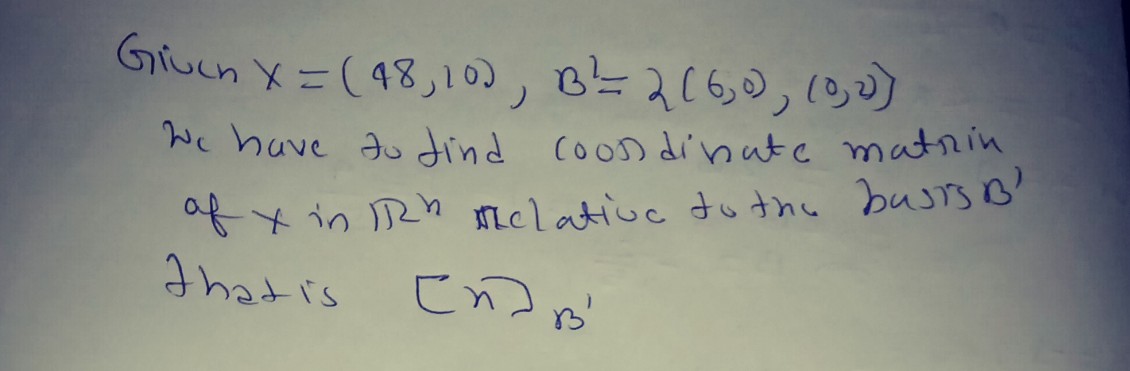 Given x = (48,10), B' = {(6,0), (0,2)}
We have to find coordinate matrix
of x in Rⁿ relative to the basis B'
that is [x]B'